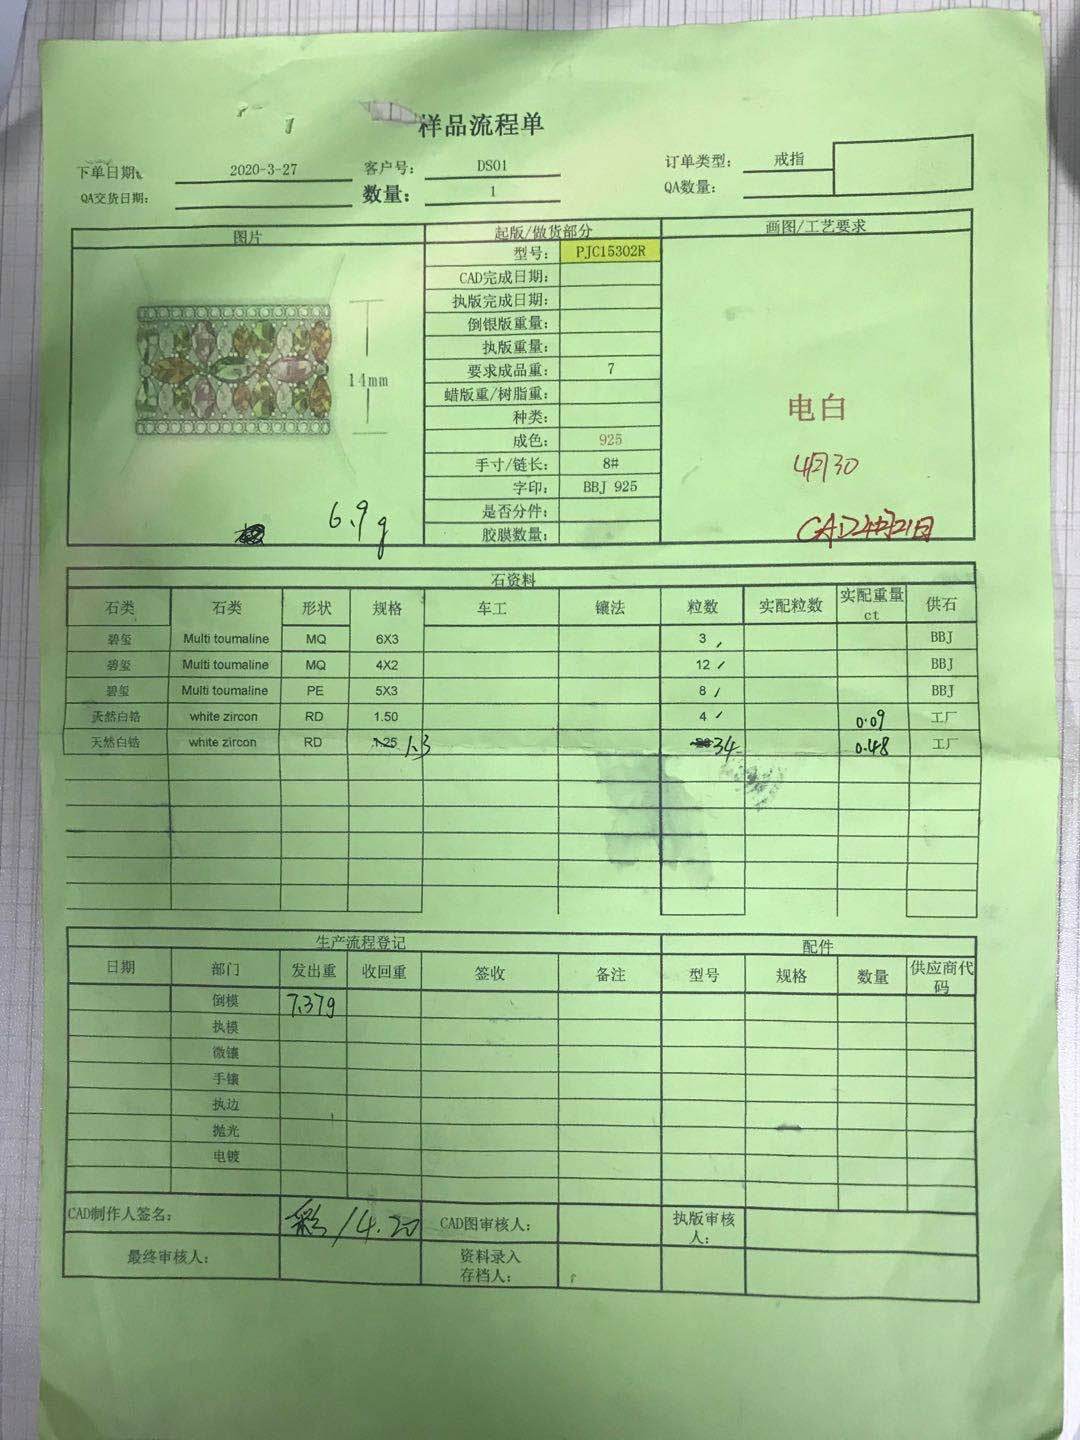 样品流程单
下单日期: 2020-3-27 客户号: DS01 订单类型: 戒指
QA交货日期: 数量: 1 QA数量:
图片 起版/做货部分 画图/工艺要求
型号: PJC15302R
CAD完成日期:
执版完成日期:
倒银版重量:
执版重量:
要求成品重: 7
14mm
蜡版重/树脂重:
种类:
电白
成色: 925
手寸/链长: 8#
4月30
字印: BBJ 925
6.9g
是否分件:
CAD4月21日
胶膜数量:
石资料
石类 石类 形状 规格 车工 镶法 粒数 实配粒数 实配重量ct 供石
碧玺 Multi toumaline MQ 6X3 3 BBJ
碧玺 Multi toumaline MQ 4X2 12 BBJ
碧玺 Multi toumaline PE 5X3 8 BBJ
天然白锆 white zircon RD 1.50 4 0.09 工厂
天然白锆 white zircon RD 1.25 1.3 34 0.48 工厂
生产流程登记 配件
日期 部门 发出重 收回重 签收 备注 型号 规格 数量 供应商代码
倒模 7.37g
执模
微镶
手镶
执边
抛光
电镀
CAD制作人签名: 彩/4.20 CAD图审核人: 执版审核人:
最终审核人: 资料录入存档人: